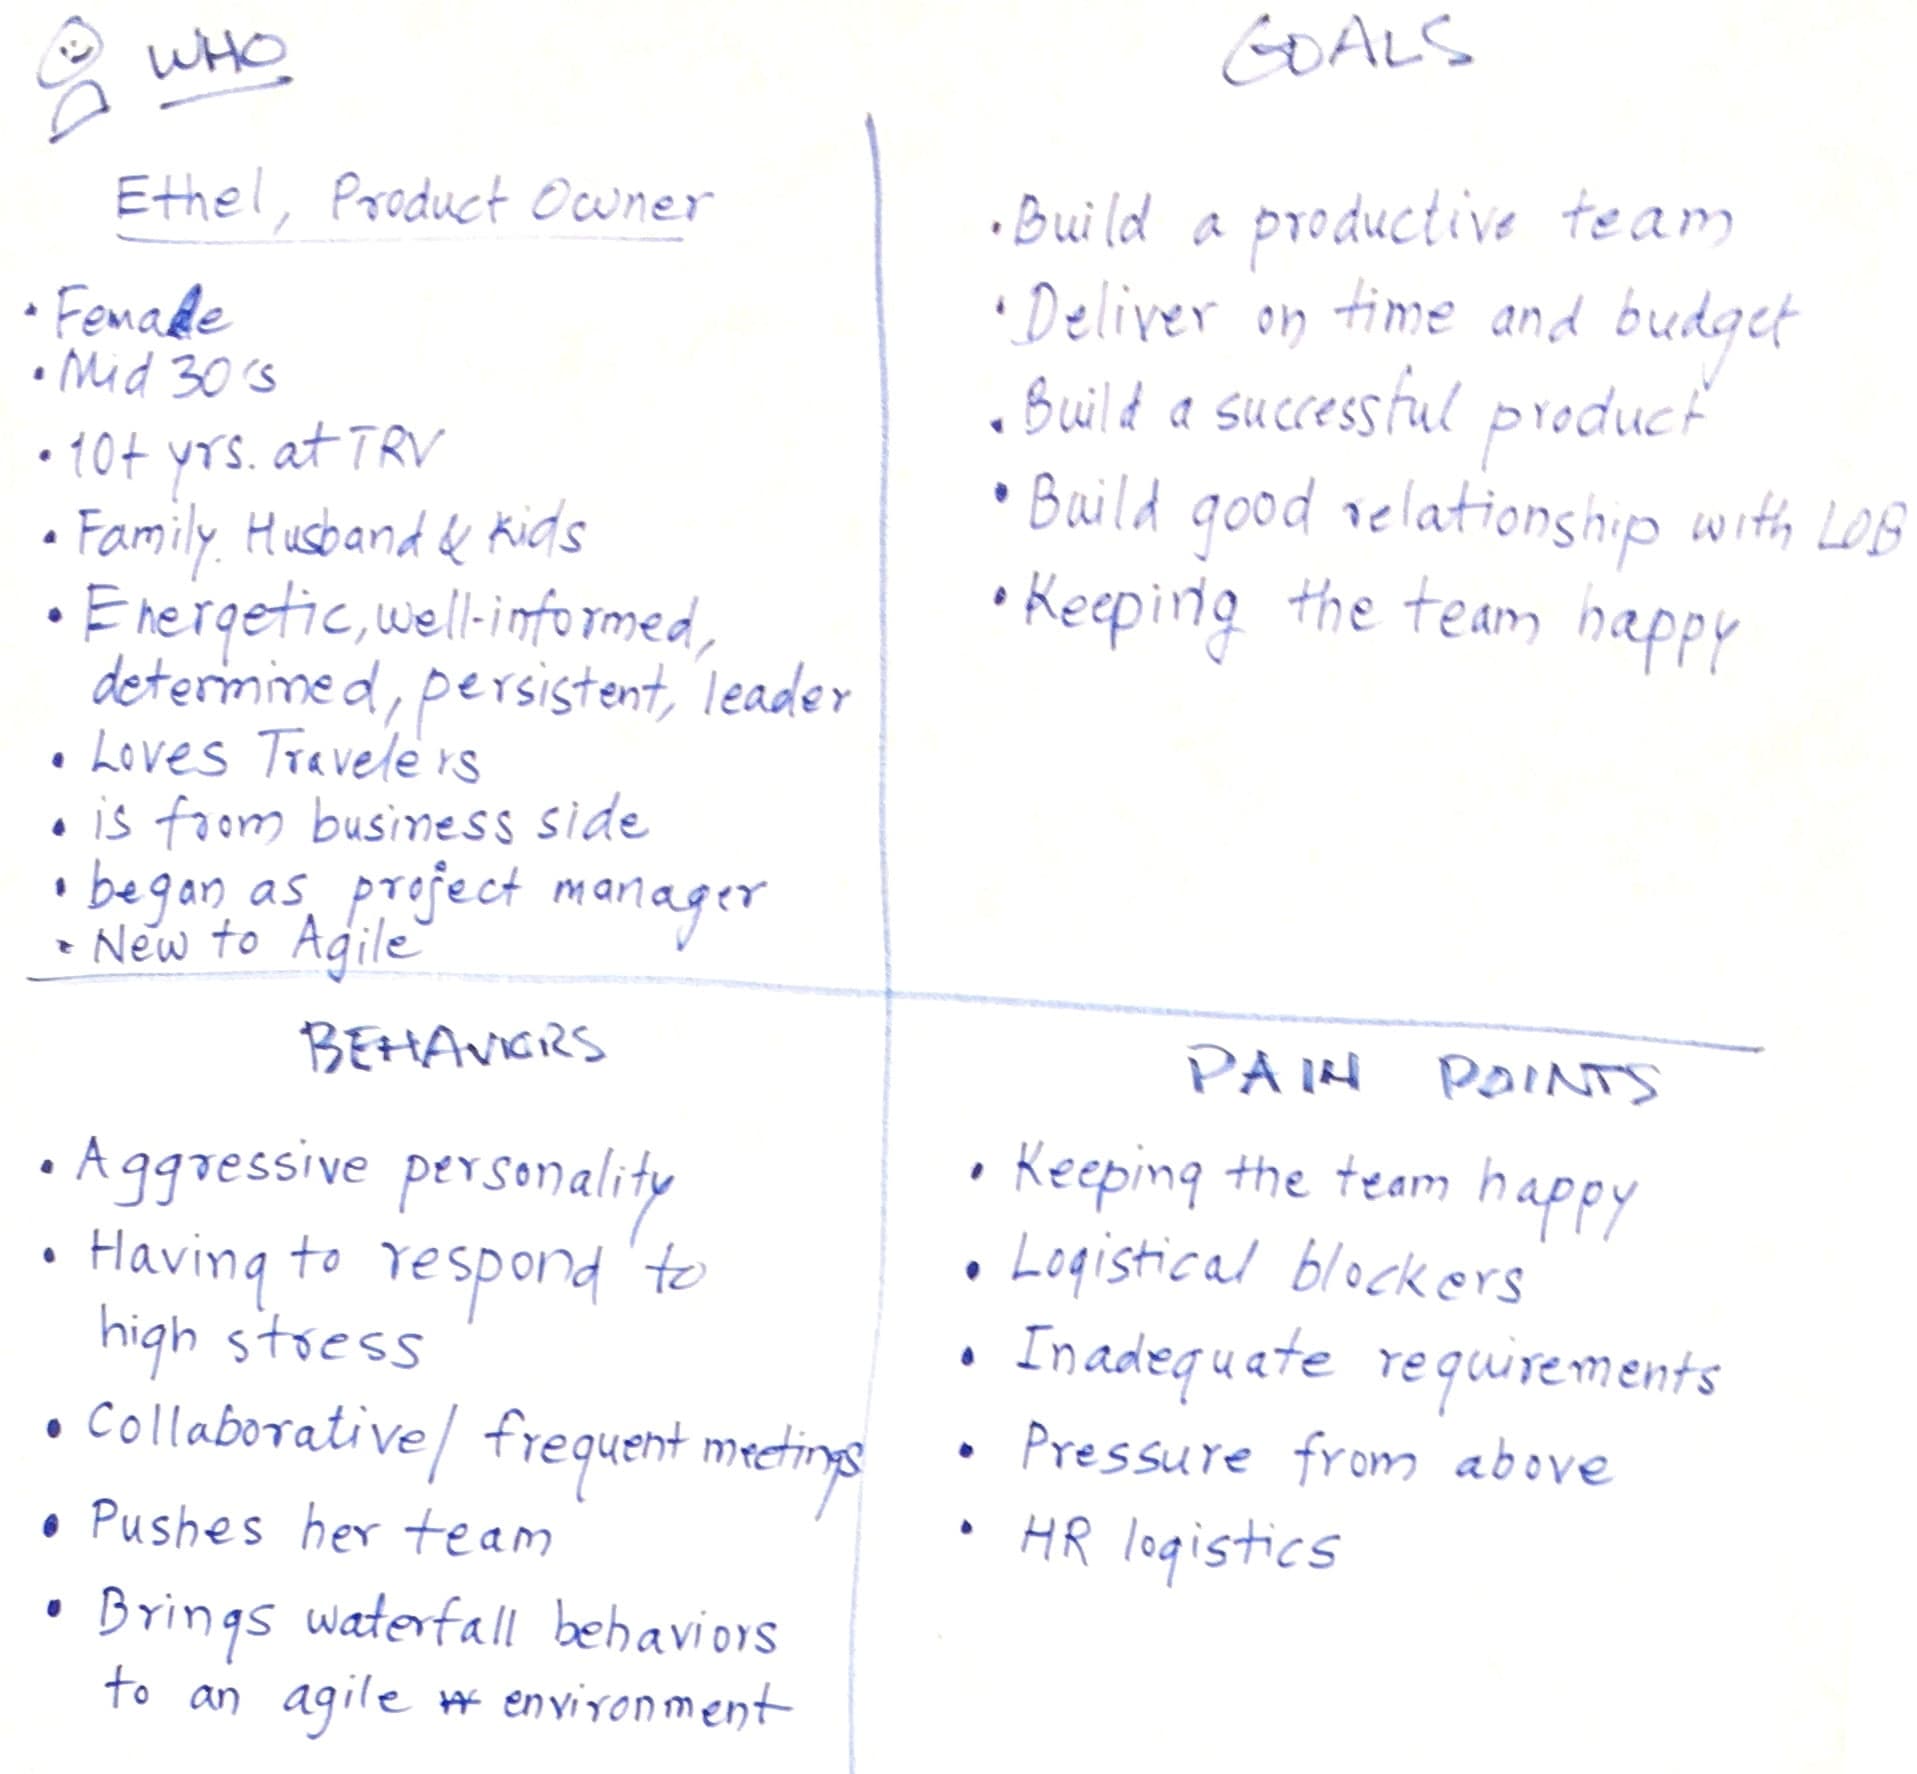 WHO
Ethel, Product Owner
• Female
• Mid 30's
• 10+ yrs. at TRV
• Family. Husband & Kids
• Energetic, well-informed,
determined, persistent, leader
• Loves Travelers
• is from business side
• began as project manager
• New to Agile
GOALS
• Build a productive team
• Deliver on time and budget
• Build a successful product
• Build good relationship with LOB
• Keeping the team happy
BEHAVIORS
• Aggressive personality
• Having to respond to
high stress
• Collaborative/ frequent meetings
• Pushes her team
• Brings waterfall behaviors
to an agile environment
PAIN POINTS
• Keeping the team happy
• Logistical blockers
• Inadequate requirements
• Pressure from above
• HR logistics